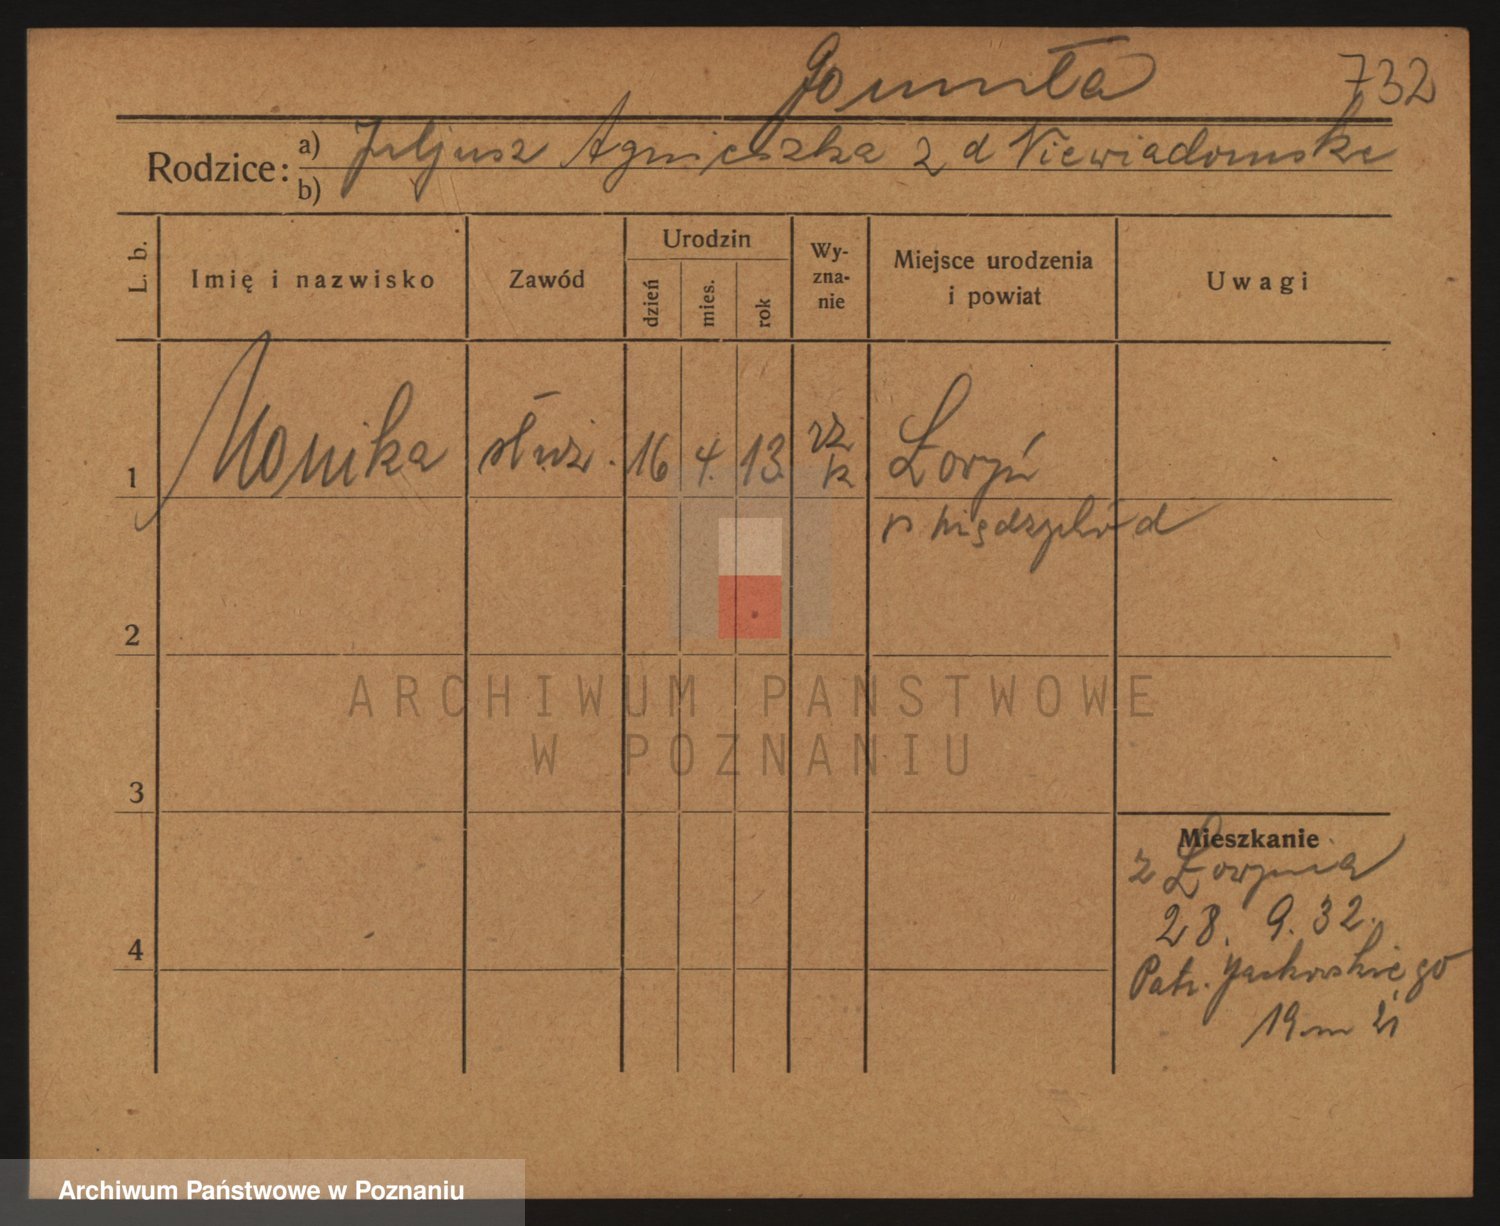 Gomuła 732
Rodzice: a) Juljusz Agnieszka z d Niewiadomska
b)
L. b. Imię i nazwisko Zawód Urodzin dzień mies. rok Wy-zna-nie Miejsce urodzenia i powiat Uwagi
1 Monika służ. 16 4. 13. rz k Łowyń
p Międzychód
2
ARCHIWUM PAŃSTWOWE
W POZNANIU
3
Mieszkanie
z Łowynia
28. 9. 32.
4
Patr. Jackowskiego
19 m
Archiwum Państwowe w Poznaniu